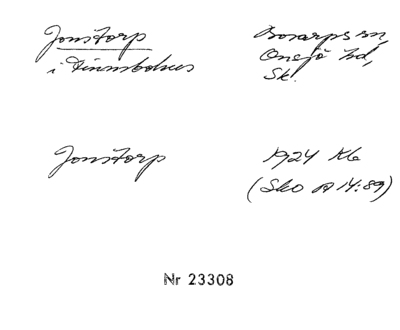 Jonstorp
i Finnsbohus
Bosarps sn,
Onsjö hd,
Sk.
Jonstorp
1924 Kb
(Sko A 14:89)
Nr 23308